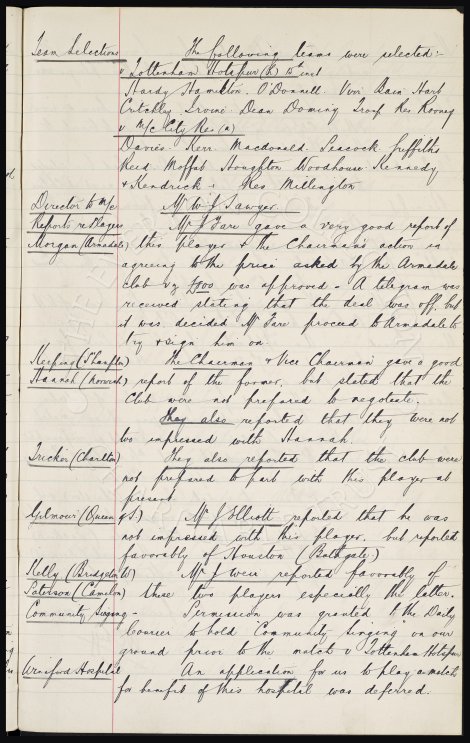 Team Selections The following teams were selected:-
v Tottenham Hotspur (h) 15th inst
Hardy Hamilton. O'Donnell. Virr Bain Hart
Critchley Irvine. Dean Dominy Troup Res Rooney
v M/c City Res (a)
Davies. Kerr. Macdonald. Peacock. Griffiths
Reid Moffat Houghton Woodhouse Kennedy
& Kendrick. Res Millington
Director to M/c Mr W. J. Sawyer.
Reports re Players Mr J Fare gave a very good report of
Morgan (Armadale) this player & the Chairman's action in
agreeing to the price asked by the Armadale
club viz £100 was approved. A telegram was
received stating that the deal was off, but
it was decided Mr Fare proceed to Armadale to
try & sign him on.
Keeping (S'hampton) The Chairman & Vice Chairman gave a good
Hannah (Norwich) report of the former, but stated that the
Club were not prepared to negotiate.
They also reported that they were not
too impressed with Hannah.
Tricker (Charlton) They also reported that the club were
not prepared to part with this player at
present
Gilmour (Queen of S.) Mr J Elliott reported that he was
not impressed with this player, but reported
favorably of Houston (Bathgate)
Kelly (Bridgeton W) Mr J Weir reported favorably of
Paterson (Camelon) these two players especially the latter.
Community Singing - Permission was granted to the Daily
Courier to hold "Community Singing" on our
ground prior to the match v Tottenham Hotspur
Wrnsford Hospital An application for us to play a match
for benefit of this hospital was deferred.